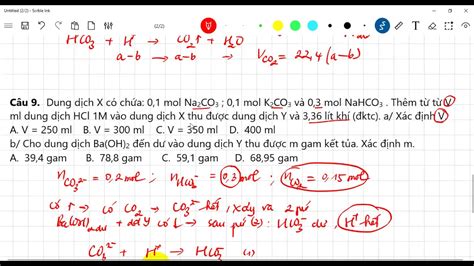 Untitled (2/2) - Scribble Ink
(2/2)
HCO₃⁻ + H⁺ → CO₂↑ + H₂O
a-b → a-b → V_CO₂ = 22,4 (a-b)
Câu 9. Dung dịch X có chứa: 0,1 mol Na₂CO₃ ; 0,1 mol K₂CO₃ và 0,3 mol NaHCO₃ . Thêm từ từ V
ml dung dịch HCl 1M vào dung dịch X thu được dung dịch Y và 3,36 lít khí (đktc). a/ Xác định V
A. V = 250 ml B. V = 300 ml C. V = 350 ml D. 400 ml
b/ Cho dung dịch Ba(OH)₂ đến dư vào dung dịch Y thu được m gam kết tủa. Xác định m.
A. 39,4 gam B. 78,8 gam C. 59,1 gam D. 68,95 gam
n_CO₃²⁻ = 0,2 mol ; n_HCO₃⁻ = 0,3 mol ; n_CO₂ = 0,15 mol
có ↑ → có CO₂ → CO₃²⁻ hết, xảy ra 2 pứ
Ba(OH)₂ dư + dd Y có ↓ → sau pứ (2) : HCO₃⁻ dư , H⁺ hết
CO₃²⁻ + H⁺ → HCO₃⁻ (1)